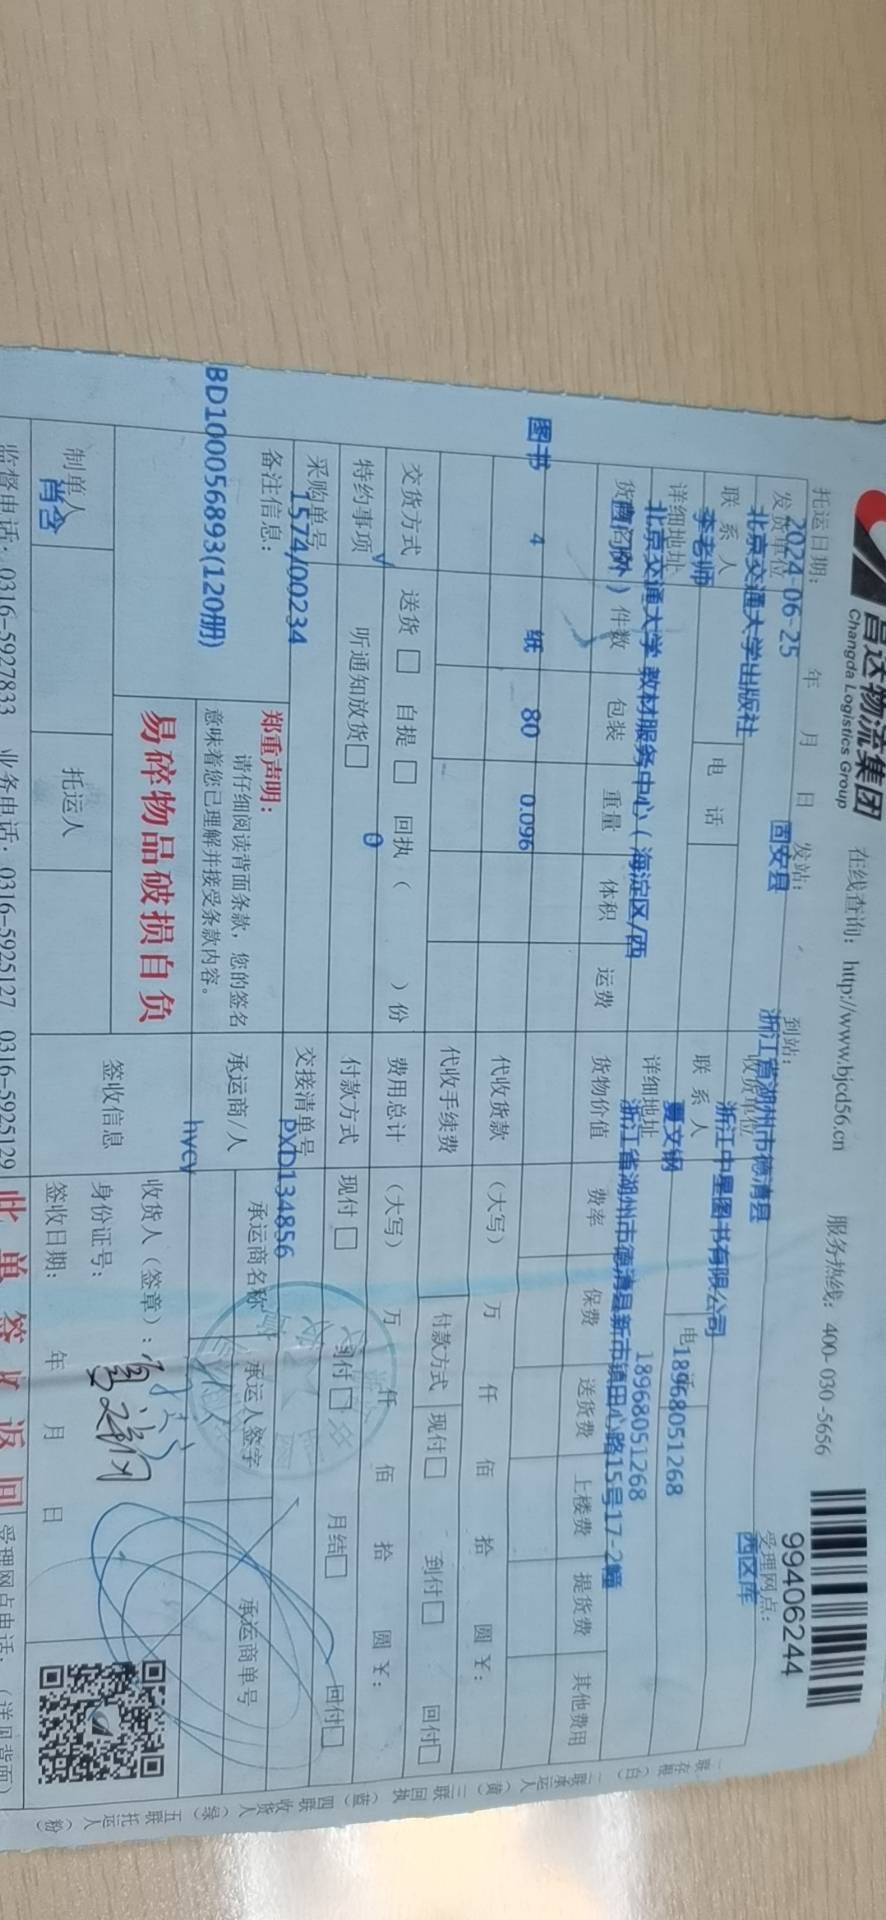 昌达物流集团
Changda Logistics Group
在线查询：http://www.bjcd56.cn
服务热线：400-030-5656
99406244
托运日期：
2024-06-25
年 月 日
发站：
固安县
到站：
浙江省湖州市德清县
受理网点：
西区库
发货单位
北京交通大学出版社
收货单位
浙江中星图书有限公司
联系人
李老师
电话
联系人
夏文钢
18968051268
详细地址
北京交通大学 教材服务中心(海淀区/西
详细地址
18968051268
浙江省湖州市德清县新市镇田心路15号17-2幢
件数 包装 重量 体积 运费 货物价值 费率 保费 送货费 上楼费 提货费 其他费用
图书 4 纸 80 0.096
代收货款 （大写） 万 仟 佰 拾 圆 ￥：
代收手续费 付款方式 现付□ 到付□ 回付□
交货方式 送货 □ 自提 □ 回执（ ）份
费用总计 （大写） 万 仟 佰 拾 圆 ￥：
特约事项 听通知放货□
0
付款方式 现付□ 到付□ 月结□ 回付□
采购单号
1574/00234
交接清单号
PXD134856
备注信息：
BD100056893(120册)
郑重声明：
请仔细阅读背面条款，您的签名
意味着您已理解并接受条款内容。
易碎物品破损自负
承运商/人 承运商名称 承运人签字 承运商单号
hycy
签收信息
收货人（签章）：
身份证号：
签收日期： 年 月 日
制单人
肖含
托运人
监督电话：0316-5927833 业务电话：0316-5925127 0316-5925129
此单签收返回
受理网点电话：（详见背面）
一联存根（白） 二联承运人（黄） 三联回执（蓝） 四联收货人（绿） 五联托运人（粉）